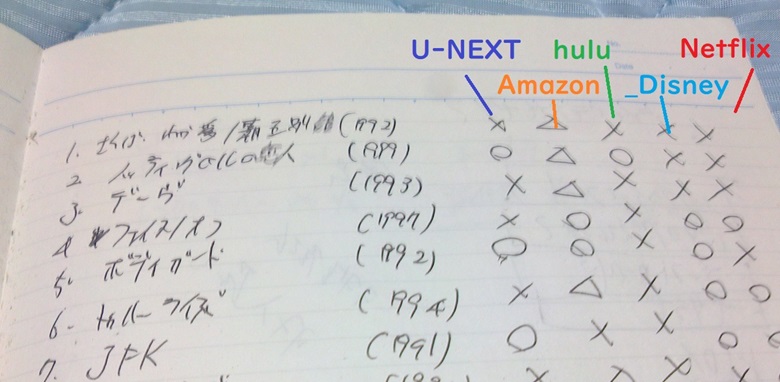 U-NEXT hulu Netflix
Amazon _Disney
1. さらば、わが愛/覇王別姫 (1992) × △ × × ×
2 ノッティングヒルの恋人 (1999) ○ △ ○ × ×
3. デーヴ (1993) × △ × × ×
4 フェイス/オフ (1997) × ○ × ○ ○
5. ボディガード (1992) ○ ○ × ○ ×
6. トゥルーライズ (1994) × △ × ○ ○
7. JFK (1991) ○ × × ○ ○